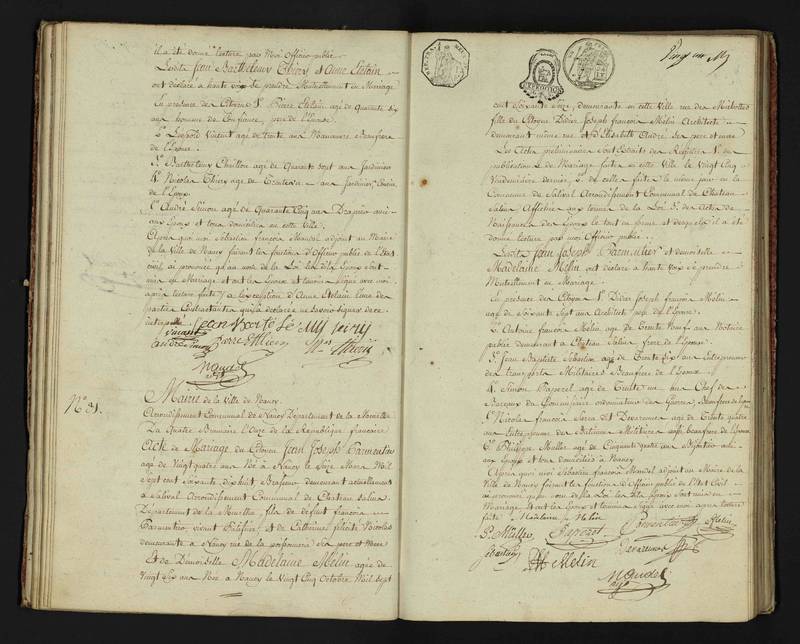 il a été donné lecture par moi officier public
Lesdits Jean Barthelemy Thiery et Anne Etelain
ont déclaré à haute voix se prendre Mutuellement en Mariage
En presence des Citoyens 1º Pierre Etelain agé de Quarante six
ans homme de Confiance, pere de l'Epouse
2º Leopold Vincent agé de trente ans Manoeuvre Beaufrere
de l'Epouse
3º Barthelemy Chrétien agé de Quarante sept ans Jardinier
4º Nicolas Thiery agé de Trente ans Jardinier, Cousin
de l'Epoux
André Simon agé de Quarante Cinq ans Drapier amis
aux Epoux et tous domiciliés en cette Ville
Après quoi moi Sebastien françois Mandel adjoint au Maire
de la Ville de Nancy faisant les fonctions d'Officier public de l'Etat
civil, ai prononcé qu'au nom de la Loi les dits Epoux sont
unis en Mariage et ont les Epoux et temoins signé avec moi
après lecture faite à l'exception d'Anne Etelain l'une des
parties Contractantes qui a déclaré ne savoir signer de ce
interpellée
Vincent
André Simon
Mandel
N° 31.
Mairie de la Ville de Nancy
Arrondissement Communal de Nancy Département de la Meurthe
Du Quatre Brumaire l'Onze de la République française
Acte de Mariage du Citoyen Jean Joseph Parmentier
agé de Vingt quatre ans Né à Nancy le Seize Mars Mil
Sept cent soixante dix huit Brasseur demeurant actuellement
à Salival Arrondissement Communal de Chateau Salins
Département de la Meurthe, fils de défunt françois
Parmentier vivant et de Catherine félicité Nicolas
demeurante à Nancy rue de la poissonnerie ses pere et Mere
Et de Demoiselle Madelaine Mélin agée de
Vingt Six ans Née à Nancy le Vingt Cinq Octobre Mil Sept
cent soixante Seize, demeurante en cette Ville rue des Michottes
fille du Citoyen Didier Joseph françois Mélin Architecte
demeurant même rue et d'Elisabeth André ses pere et mere
Les Actes préliminaires sont Extraits des Registres 1º de
publication de Mariage faites en cette Ville le Vingt Cinq
Vendemiaire dernier, 2º de celle faite le même jour en la
Commune de Salival Arrondissement Communal de Chateau
Salins Affichées aux termes de la Loi 3º des Actes de
Naissances des Epoux le tout en forme et desquels il a été
donné lecture par moi Officier public
Lesdits Jean Joseph Parmentier et demoiselle
Madelaine Mélin ont déclaré à haute Voix se prendre
Mutuellement en Mariage
En presence des Citoyens 1º Didier Joseph françois Mélin
agé de Soixante Sept ans Architecte pere de l'Epouse
2º Antoine françois Mélin, agé de Trente Neuf ans Notaire
public demeurant à Chateau Salins frere de l'Epouse
3º Jean Baptiste Sébastien agé de Trente six ans Entrepreneur
des transports Militaires Beaufrere de l'Epouse
4º Simon Paperel agé de Trente un ans Chef des
Bureaux du Commissaire ordonnateur des Guerres, Beaufrere
5º Nicolas françois agé de Trente quatre
ans Entrepreneur des Batimens Militaires aussi beaufrere de l'Epouse
6º Philippe Muller agé de Cinquante quatre ans ami
aux Epoux et tous domiciliés à Nancy
Après quoi moi Sébastien françois Mandel adjoint au Maire de la
Ville de Nancy faisant les fonctions d'Officier public de l'Etat Civil
ai prononcé qu'au nom de la Loi les dits Epoux sont unis en
Mariage et ont les Epoux et temoins signé avec moi après lecture
faite Madelaine Mélin
P. Muller Paperel Parmentier Mélin
Sebastien Mélin
Mandel